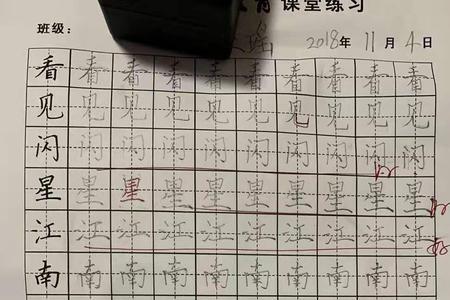 育 课堂练习
班级： 瑶 2018年 11月 4日
看 看 看 看 看 看 看 看 看 看
见 见 见 见 见 见 见 见 见 见
闪 闪 闪 闪 闪 闪 闪 闪 闪 闪
星 星 星 星 星 星 星 星 星 星
江 江 江 江 江 江 江 江 江 江
南 南 南 南 南 南 南 南 南 南